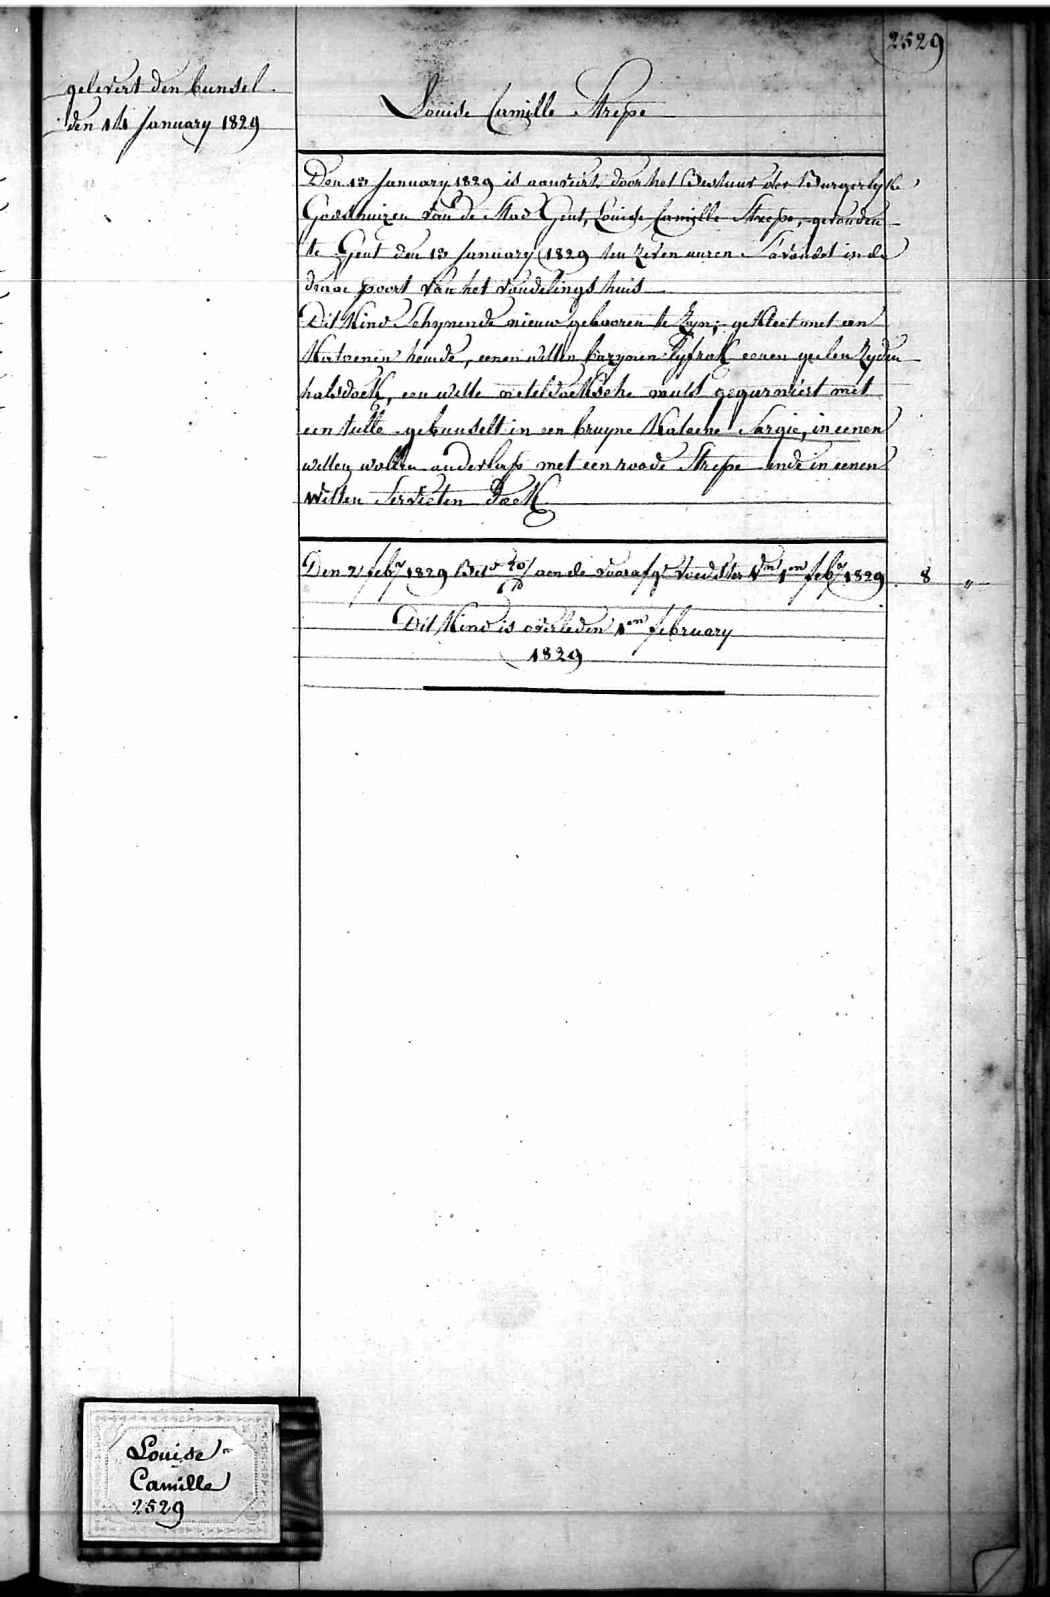 2529
gelevert den bunsel
den 14 January 1829
Louise Camille Strepe
Den 13 January 1829 is aanveirt, door het Bestuur der Burgerlyke
Godshuizen van de Stad Gent, Louise Camille Strepe, gevonden
te Gent den 13 January 1829 ten zeven uuren S'avondst in de
draae poort van het vondelings huis
Dit Kind Schynende nieuw gebooren te Zyn; gekleet met een
Kattoenen hemde, eenen witten bazynen lyfrok eenen geelen Zyden
halsdoek, een witte neteldoeksche muts gegarniert met
een tulle gebunselt in een bruyne Kataene Sargie, in eenen
witten wollen onderlap met een roode Strepe ende in eenen
witten Servieten doek
Den 2 feby 1829 aen de voorafge voedster 1en feby 1829 8 "
Dit Kind is overleden 1en february
1829
Louise
Camille
2529